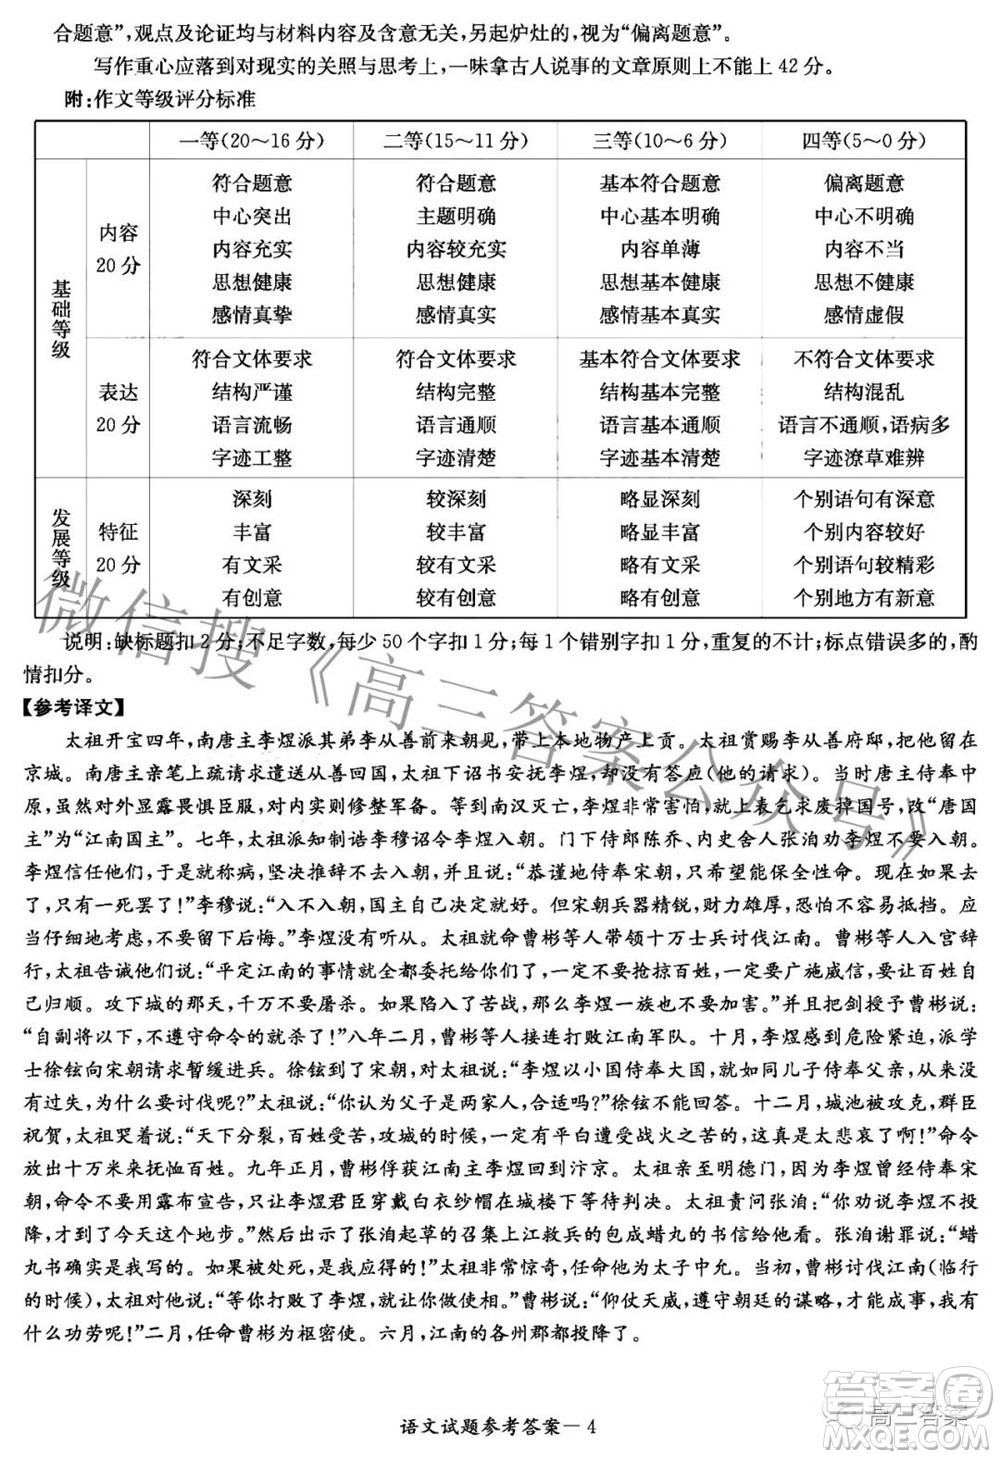 合题意”,观点及论证均与材料内容及含意无关,另起炉灶的,视为“偏离题意”。
写作重心应落到对现实的关照与思考上,一味拿古人说事的文章原则上不能上 42 分。
附:作文等级评分标准
一等(20～16 分) 二等(15～11 分) 三等(10～6 分) 四等(5～0 分)
基础等级
内容
20 分
符合题意 符合题意 基本符合题意 偏离题意
中心突出 主题明确 中心基本明确 中心不明确
内容充实 内容较充实 内容单薄 内容不当
思想健康 思想健康 思想基本健康 思想不健康
感情真挚 感情真实 感情基本真实 感情虚假
表达
20 分
符合文体要求 符合文体要求 基本符合文体要求 不符合文体要求
结构严谨 结构完整 结构基本完整 结构混乱
语言流畅 语言通顺 语言基本通顺 语言不通顺,语病多
字迹工整 字迹清楚 字迹基本清楚 字迹潦草难辨
发展等级
特征
20 分
深刻 较深刻 略显深刻 个别语句有深意
丰富 较丰富 略显丰富 个别内容较好
有文采 较有文采 略有文采 个别语句较精彩
有创意 较有创意 略有创意 个别地方有新意
说明:缺标题扣 2 分;不足字数,每少 50 个字扣 1 分;每 1 个错别字扣 1 分,重复的不计;标点错误多的,酌
情扣分。
【参考译文】
太祖开宝四年,南唐主李煜派其弟李从善前来朝见,带上本地物产上贡。太祖赏赐李从善府邸,把他留在
京城。南唐主亲笔上疏请求遣送从善回国,太祖下诏书安抚李煜,却没有答应(他的请求)。当时唐主侍奉中
原,虽然对外显露畏惧臣服,对内实则修整军备。等到南汉灭亡,李煜非常害怕,就上表乞求废掉国号,改“唐国
主”为“江南国主”。七年,太祖派知制诰李穆诏令李煜入朝。门下侍郎陈乔、内史舍人张洎劝李煜不要入朝。
李煜信任他们,于是就称病,坚决推辞不入朝,并且说:“恭谨地侍奉宋朝,只希望能保全性命。现在如果像这
样,只有一死罢了!”李穆说:“入不入朝,国主自己决定就好。但宋朝兵器精锐,财力雄厚,恐怕不容易抵挡。应
当仔细地考虑,不要留下后悔。”李煜没有听从。太祖就命曹彬等人带领十万士兵讨伐江南。曹彬等人入宫辞
行,太祖告诫他们说:“平定江南的事情就全都委托给你了,一定不要抢掠百姓,一定要广施威信,要让百姓自
己归顺。攻下城的那天,千万不要屠杀。如果陷入了苦战,那么李煜一族也不要加害。”并且把剑授予曹彬说:
“自副将以下,不遵守命令的就杀了!”八年二月,曹彬等人接连打败江南军队。十月,李煜感到危险紧迫,派学
士徐铉向宋朝请求暂缓进兵。徐铉到了宋朝,对太祖说:“李煜以小国侍奉大国,就如同儿子侍奉父亲,从来没
有过失,为什么要讨伐呢?”太祖说:“你认为父子是两家人,合适吗?”徐铉不能回答。十二月,城池被攻克,群臣
祝贺,太祖哭着说:“天下分裂,百姓受苦,攻城的时候,一定有平白遭受战火之苦的,这真是太悲哀了啊!”命令
放出十万米来抚恤百姓。九年正月,曹彬俘获江南主李煜回到汴京。太祖亲至明德门,因为李煜曾经侍奉宋
朝,命令不要用露布宣告,只让李煜君臣穿戴白衣纱帽在城楼下等待判决。太祖责问张洎:“你劝说李煜不投
降,才到了今天这个地步。”然后出示了张洎起草的召集上江救兵的包成蜡丸的书信给他看。张洎谢罪说:“蜡
丸书确实是我写的。如果被处死,是我应得的!”太祖非常惊奇,任命他为太子中允。当初,曹彬讨伐江南(临行
的时候),太祖对他说:“等你打败了李煜,就让你做使相。”曹彬说:“仰仗天威,遵守朝廷的谋略,才能成事,我有
什么功劳呢!”二月,任命曹彬为枢密使。六月,江南的各州郡都投降了。
语文试题参考答案－ 4
微信搜《高三答案公众号》
高三答案
答案卷
MXQE.COM